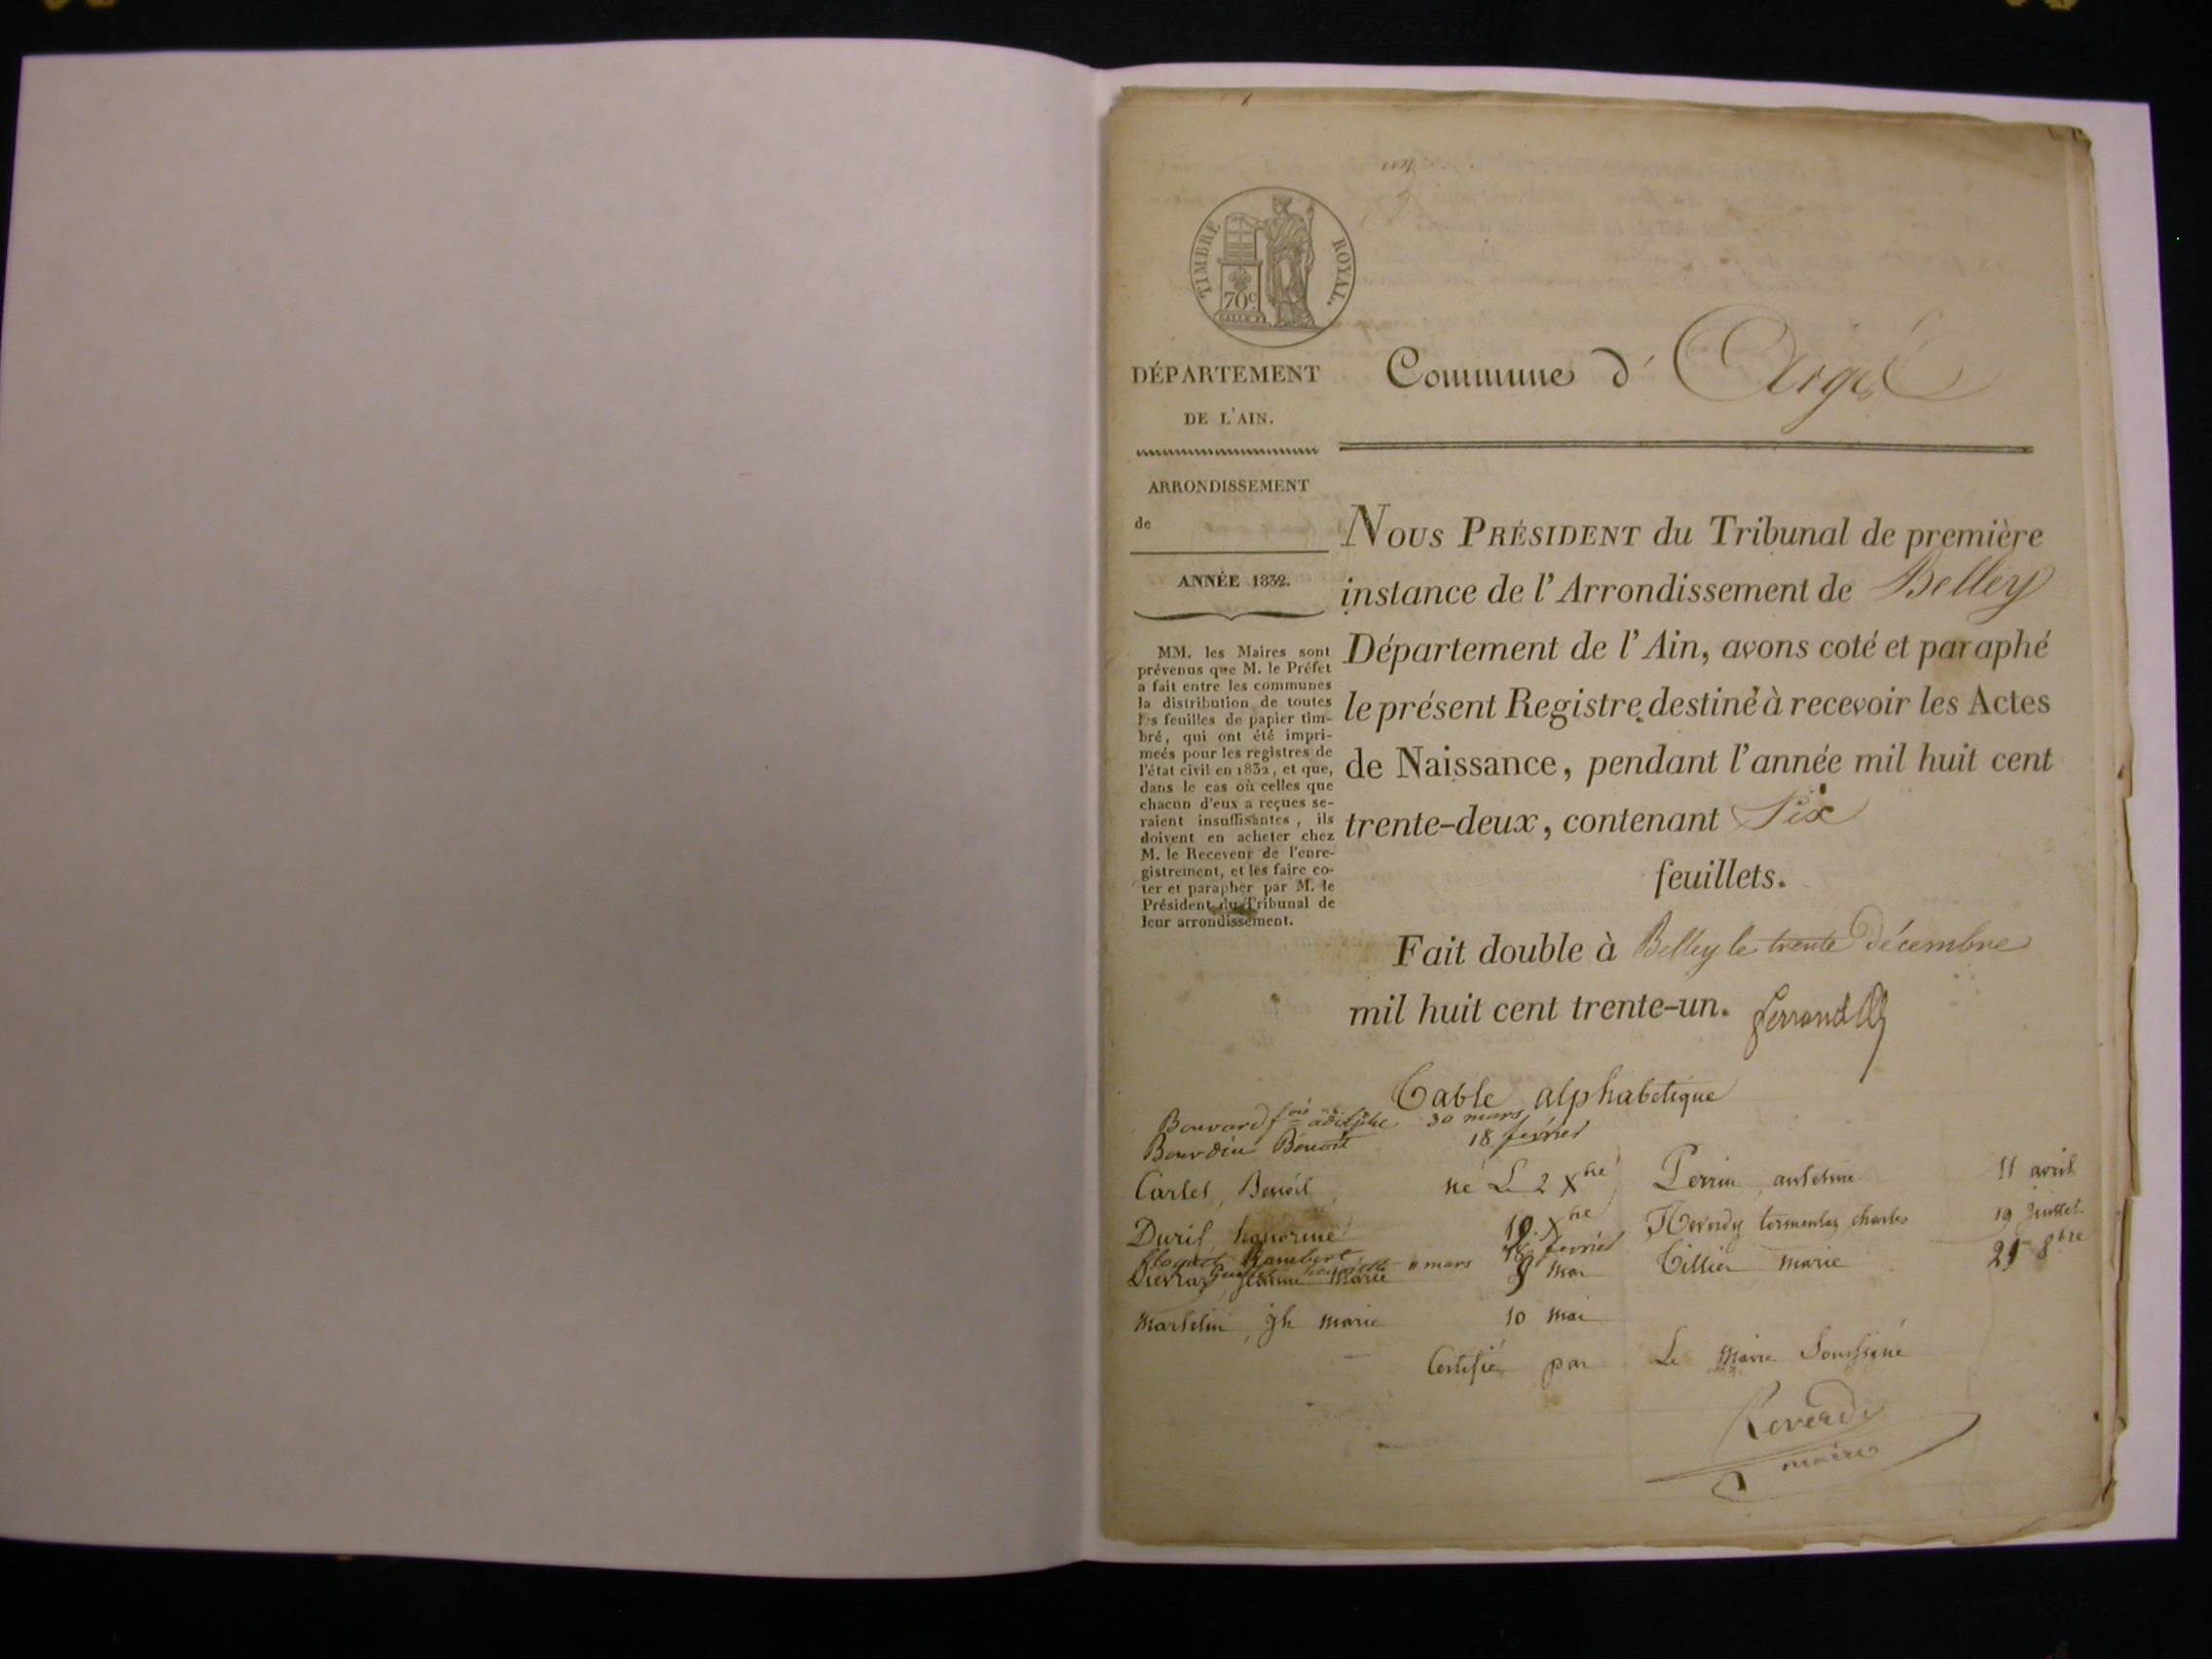 TIMBRE ROYAL.
70c
DÉPARTEMENT
DE L'AIN.
Commune d'
ARRONDISSEMENT
de
ANNÉE 1832.
MM. les Maires sont
prévenus que M. le Préfet
a fait entre les communes
la distribution de toutes
les feuilles de papier tim-
bré, qui ont été impri-
meés pour les registres de
l'état civil en 1832, et que,
dans le cas où celles que
chacun d'eux a reçues se-
raient insuffisantes, ils
doivent en acheter chez
M. le Receveur de l'enre-
gistrement, et les faire co-
ter et parapher par M. le
Président du Tribunal de
leur arrondissement.
Nous Président du Tribunal de première
instance de l'Arrondissement de Belley
Département de l'Ain, avons coté et paraphé
le présent Registre destiné à recevoir les Actes
de Naissance, pendant l'année mil huit cent
trente-deux, contenant Six
feuillets.
Fait double à Belley le trente Décembre
mil huit cent trente-un. Ferrand
Table alphabétique
Bouvard fois adolphe 30 mars
Bourdin Benoit 18 février
Carlet, Benoit né Le 2 Xbre Perrin antelme 11 avril
Durif honorine 19 Xbre charles 19 Juillet
Rambert février
jeanne Marie mars 9 Mai Tillier marie 21 8bre
Martelin jh marie 10 mai
Certifié par Le Maire Soussigné
Reverdy
maire